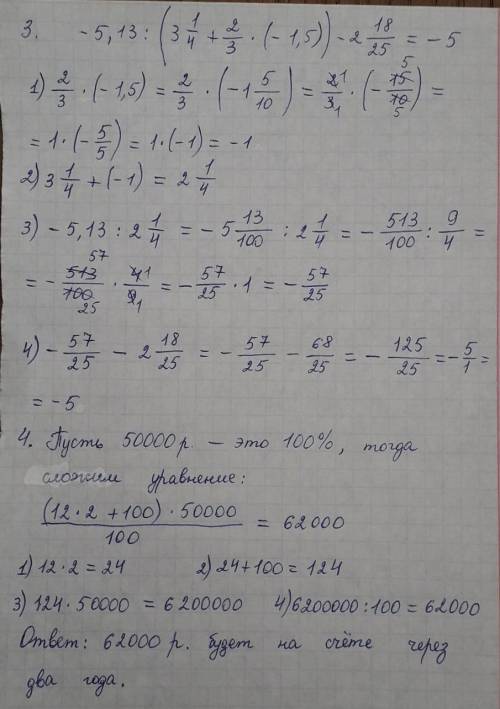 3. -5,13 : (3 1/4 + 2/3 · (-1,5)) - 2 18/25 = -5
1) 2/3 · (-1,5) = 2/3 · (-1 5/10) = 2̶ 1/3̶ 1 · (-1̶5̶ 5/1̶0̶ 5) =
= 1 · (-5/5) = 1 · (-1) = -1
2) 3 1/4 + (-1) = 2 1/4
3) -5,13 : 2 1/4 = -5 13/100 : 2 1/4 = -513/100 : 9/4 =
= -5̶1̶3̶ 57/1̶0̶0̶ 25 · 4̶ 1/9̶ 1 = -57/25 · 1 = -57/25
4) -57/25 - 2 18/25 = -57/25 - 68/25 = -125/25 = -5/1 =
= -5
4. Пусть 50000 р. — это 100%, тогда
сложим уравнение:
(12·2 + 100) · 50000/100 = 62000
1) 12·2 = 24 2) 24+100 = 124
3) 124·50000 = 6200000 4) 6200000:100 = 62000
Ответ: 62000 р. будет на счёте через
два года.